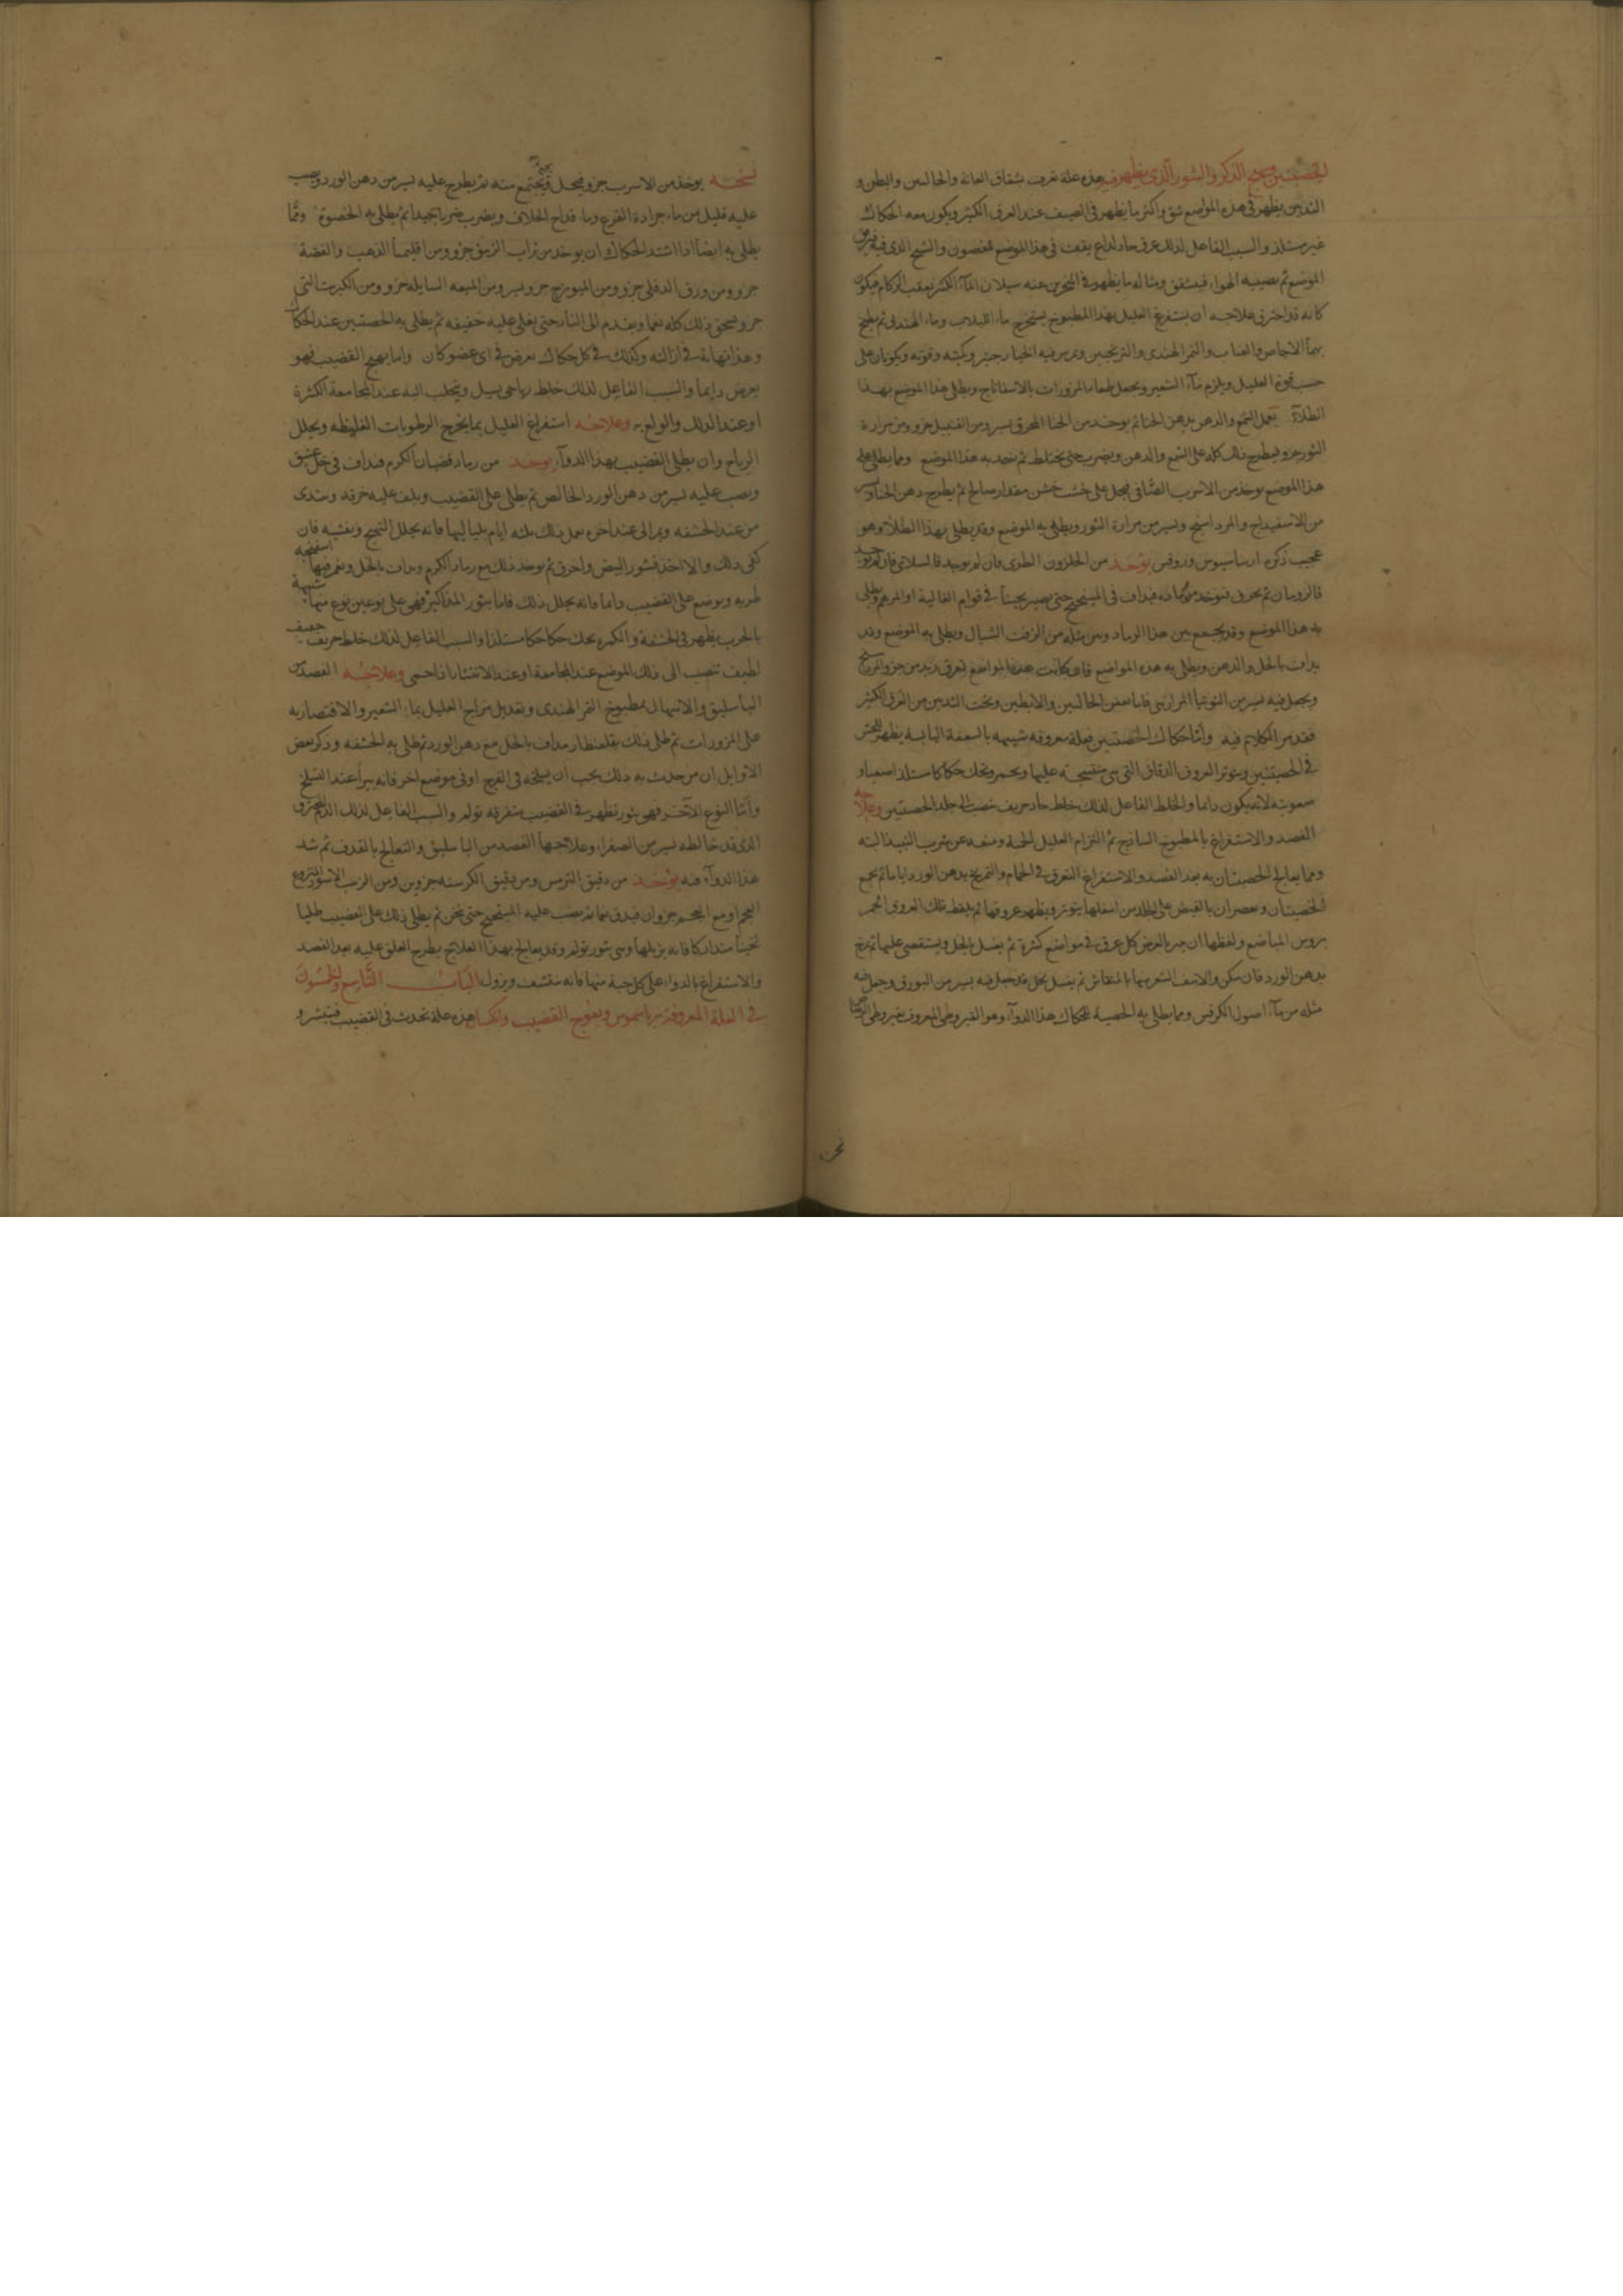 الخصيتين وتهيج الذكر والبثور الذى يظهر فيه هذه علة تعرف بشقاق العانة والحالبين والبطن و
الثديين يظهر فى هذه المواضع شق واكثر ما يظهر فى الصيف عند العرق الكثير ويكون معه الحكاك
غير مستلذ والسبب الفاعل لذلك عرق حاد لذاع يقف فى هذا الموضع لغضون والشيح الذى فيه
الموضع ثم يصيبه الهواء فيتشقق ومثاله ما يظهر فى المنخرين عنه سيلان الماء الكثير بعقب الزكام فيكون
كانه قد احترق علاجه ان يستفرغ العليل بهذا المطبوخ يستخرج ماء اللبلاب وماء الهندبى ثم يطبخ
بهما الاجاص والعناب والتمر الهندى والترنجبين ويمرس فيه الخيار جنبر وكميته وقوته ويكونان على
حسب قوة العليل ويلزم ماء الشعير ويجعل طعامه المزورات بالاسفاناج ويطلى هذا الموضع بهذا
الطلاء يعمل الشمع والدهن بدهن الحنا ثم يوخذ من الحنا المحرق يسير ومن القنبيل جزو ومن مرارة
الثور جزو فيطرح ذلك كله على الشمع والدهن ويضرب حتى يختلط ثم يضمد به هذا الموضع ومما يطلى على
هذا الموضع يوخذ من الاسرب الصافى فيحل على خشب خشن مقدار صالح ثم يطرح دهن الحنا ويسير
من الاسفيداج والمرداسنج ويسير من مرارة الثور ويطلى به الموضع وقد يطلى بهذا الطلاء وهو
عجيب ذكره ارساسيوس وروفس يوخذ من الحلزون الطرى فان لم يوجد فالسلاتى فان لم يوجد
ثم يحرق فيوخذ رماده فيداف فى الميفختج حتى يصير ثخينا فى قوام الغالية او المرهم ويطلى
به هذا الموضع وقد يجمع بين هذا الرماد ومن مثله من الزفت السيال ويطلى به الموضع وقد
يداف بالخل والدهن ويطلى به هذه المواضع فان كانت هذه المواضع تعرق زيد من جزو المرتك
ويجعل فيه يسير من التوتيا المرازبى فاما عفن الحالبين والابطين وتحت الثديين من العرق الكثير
فقد مر الكلام فيه واما حكاك الخصيتين فعلة معروفه شبيهه بالسعفة اليابسة يظهر
فى الخصيتين وتتوتر العروق الدقاق التى هى منتسجة عليها ويحمر وتحك حكاكا مستلذا صعبا و
صعوبته لانه يكون دايما والخلط الفاعل لذلك خلط حاد حريف ينصب الى جلد الخصيتين وعلاجه
الفصد والاستفراغ بالمطبوخ الساذج ثم التزام العليل الحمية ومنعه عن شرب النبيذ البتة
ومما يعالج الخصيتان به بعد الفصد والاستفراغ التعرق فى الحمام والتمريخ بدهن الورد اياما ثم يجمع
الخصيتان وتعصران بالقبض على الجلد من اسفلها يتوتر ويظهر عروقها ثم يلقط تلك العروق الحمر
بروس المباضع ولقطها ان يجر بالعرض كل عرق فى مواضع كثيرة ثم يغسل بالخل ويستقصى عليها ثم يمرخ
بدهن الورد فان سكن والا نتف الشعر منها بالمنقاش ثم يغسل بخل قد جعل فيه يسير من البورق وجعل فيه
مثله من ماء اصول الكرفس ومما يطلى به الخصية للحكاك هذا الدواء وهو القيروطى المعروف بقيروطى الرصاص
نسخته يوخذ من الاسرب جزو فيحل ويجتمع منه ثم يطرح عليه يسير من دهن الورد ويصب
عليه قليل من ماء جرادة القرع وماء قداح الخلاف ويضرب ضربا جيدا ثم يطلى به الخصوة ومما
يطلى به ايضا اذا اشتد الحكاك ان يوخذ من تراب الزيبق جزو ومن اقليميا الذهب والفضة
جزو ومن ورق الدفلى جزو ومن الميويزج جزو يسر ومن الميعه السايله جزو ومن الكبريت التى
جزو يسحق ذلك كله نعما ويقدم الى النار حتى يغلى غليه خفيفه ثم يطلى به الخصيتين عند الحكاك
وهذا نهايته فى ازالته وكذلك فى كل حكاك يعرض فى اى عضو كان واما تهيج القضيب فهو
يعرض دايما والسبب الفاعل لذلك خلط رياحى يسيل ويتحلب اليه عند المجامعة الكثيرة
او عند الدلك والولع به وعلاجه استفراغ العليل بما يخرج الرطوبات الغليظه ويحلل
الرياح وان يطلى القضيب بهذا الدواء يوخذ من رماد قضبان الكرم فيداف فى خل عتيق
ويصب عليه يسير من دهن الورد الخالص ثم يطلى على القضيب ويلف عليه خرقه ويبتدى
من عند الحشفه ويرا الى عند اخره يعمل ذلك ثلثه ايام بلياليها فانه يحلل التهيج ويفشيه فان
كفى ذلك والا اخذ قشور البيض واحرق ثم يوخذ ذلك مع رماد الكرم ويداف بالخل ويغمر فيها اسفنجه
طريه ويوضع على القضيب دايما فانه يحلل ذلك فاما بثور المذاكير فهى على نوعين نوع منها شبيهة
بالجرب يظهر فى الحشفة والكمره يحك حكاكا مستلذا والسبب الفاعل لذلك خلط حريف
لطيف تنصب الى ذلك الموضع عند المجامعة او عند الانتشار اذا حمى وعلاجه الفصد من
الباسليق والاسهال بمطبوخ التمر الهندى وتعديل مزاج العليل بماء الشعير والاقتصار به
على المزورات ثم طلى ذلك بقلقطار مداف بالخل مع دهن الورد ثم طلى به الحشفه وذكر بعض
الاوايل ان من حدث به ذلك يجب ان يسلخه فى الفرج او فى موضع اخر فانه يبرا عند السلخ
واما النوع الآخر فهى بثور تظهر فى القضيب متفرقه تولم والسبب الفاعل لذلك الدم المحترق
الذى قد خالطه يسير من الصفراء وعلاجها الفصد من الباسليق والتعالج بالقذف ثم شد
هذا الدواء فيه يوخذ من دقيق الترمس ومن دقيق الكرسنه جزوين ومن الزبيب الاسود المنزوع
العجم او مع العجم جزوان فيدق نعما ثم يصب عليه الميفختج حتى يثخن ثم يطلى ذلك على القضيب طليا
ثخينا متداركا فانه يزيلها وهى بثور تولم وقد يعالج بهذا العلاج بطرح العلق عليه بعد الفصد
والاستفراغ بالدواء على كل حبة منها فانه يتقشف ويزول الباب التاسع والخمسون
فى العلة المعروفة وتعوج القضيب وانكساره هذه علة تحدث فى القضيب فينتشر و
نحن